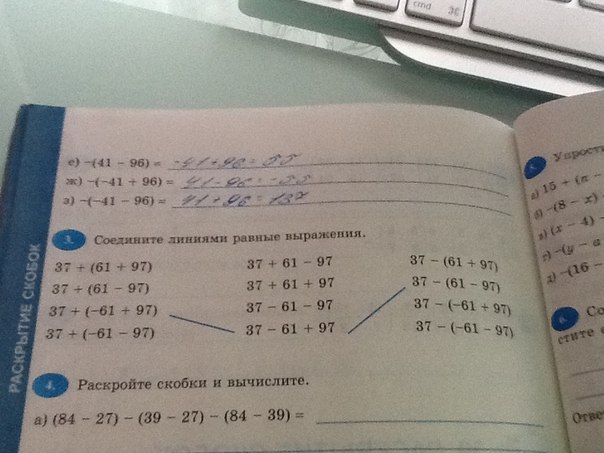 cmd ⌘
е) −(41 − 96) = -41+96=55
ж) −(−41 + 96) = 41-96=-55
з) −(−41 − 96) = 41+96=137
3. Соедините линиями равные выражения.
37 + (61 + 97) 37 + 61 − 97 37 − (61 + 97)
37 + (61 − 97) 37 + 61 + 97 37 − (61 − 97)
37 + (−61 + 97) 37 − 61 − 97 37 − (−61 + 97)
37 + (−61 − 97) 37 − 61 + 97 37 − (−61 − 97)
4. Раскройте скобки и вычислите.
а) (84 − 27) − (39 − 27) − (84 − 39) =
РАСКРЫТИЕ СКОБОК
Упрости
а) 15 + (n −
б) −(8 − x)
в) (x − 4) −
г) −(y − a
д) −(16 −
6. Со
стите с
Ответ